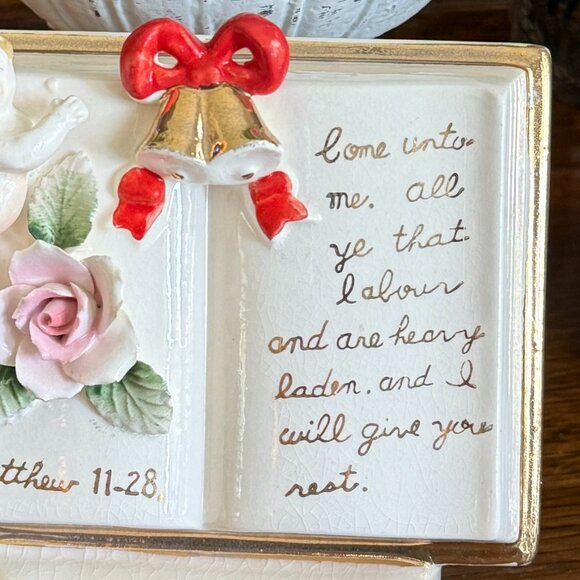 tthew 11-28.
Come unto
me. all
ye that.
labour
and are heavy
laden. and I
will give you
rest.